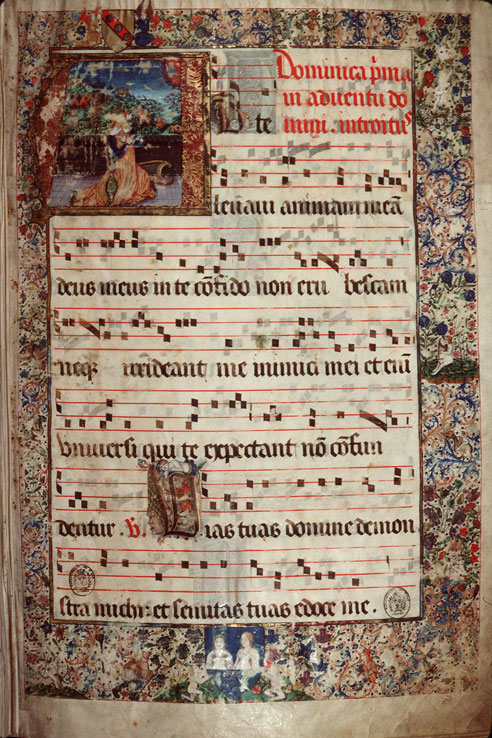 Dominica p̃ma
in adventu do
mini. introitus
te
levavi animam meā
deus meus in te cōfido non eru bescam
neq̃ irrideant me inimici mei et eni̅
universi qui te expectant nō cōfun
dentur. V. Vias tuas domine demon
stra michi: et semitas tuas edoce me.